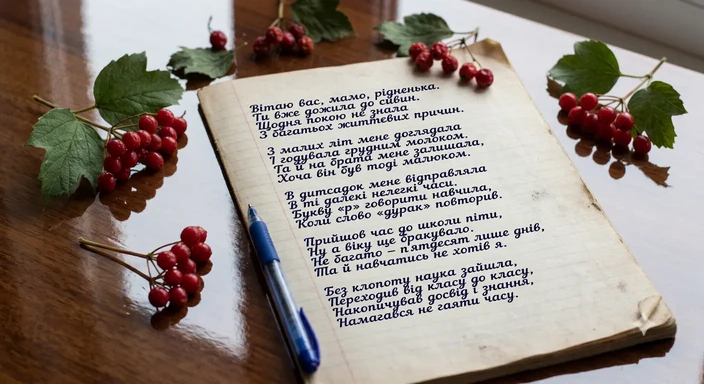 Вітаю вас, мамо, рідненька.
Ти вже дожила до сивин.
Щодня покою не знала
З багатьох життєвих причин.
З малих літ мене доглядала
І годувала грудним молоком.
Та й на брата мене залишала,
Хоча він був тоді малюком.
В дитсадок мене відправляла
В ті далекі нелегкі часи.
Букву «р» говорити навчила,
Коли слово «дурак» повторив.
Прийшов час до школи піти,
Ну а віку ще бракувало.
Не багато – п'ятдесят лише днів,
Та й навчатись не хотів я.
Без клопоту наука зайшла,
Переходив від класу до класу,
Накопичував досвід і знання,
Намагався не гаяти часу.